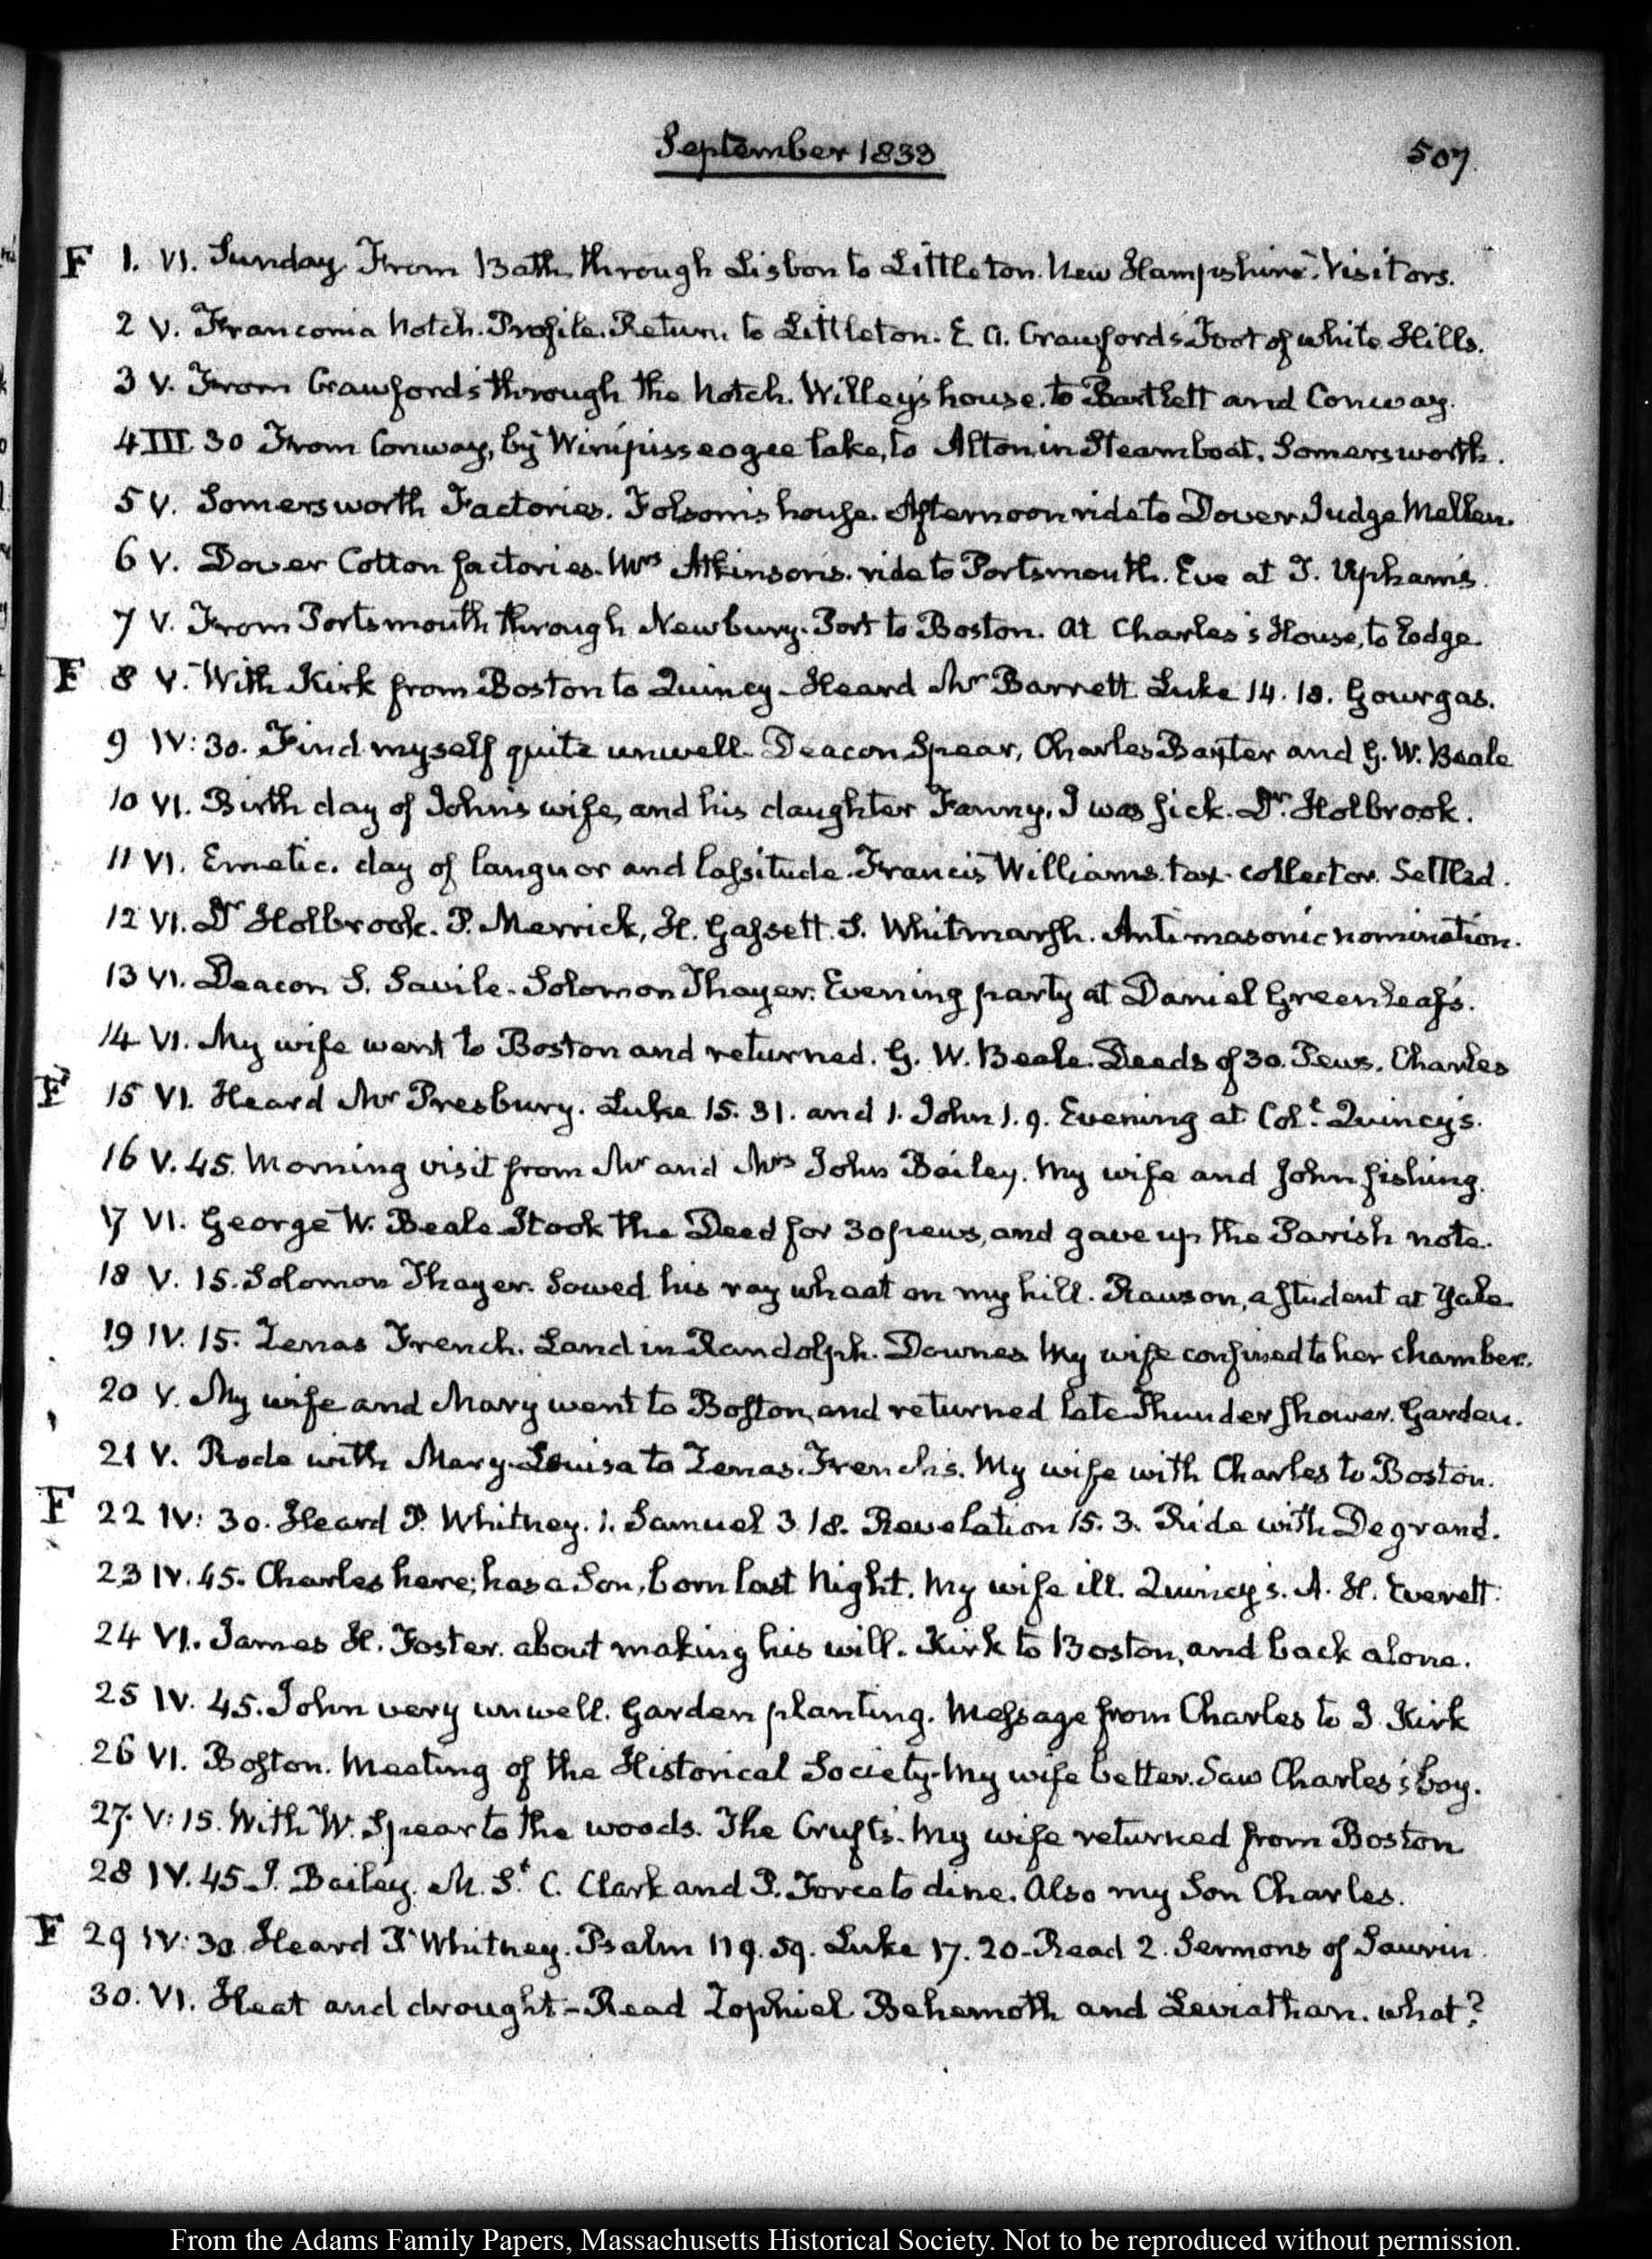 September 1833
507.
F 1. VI. Sunday. From Bath through Lisbon to Littleton. New Hampshire. Visitors.
2 V. Franconia Notch. Profile. Return to Littleton. E. A. Crawford's Foot of white Hills.
3 V. From Crawford's through the Notch. Willey's house. to Bartlett and Conway.
4 III. 30 From Conway, by Winipisseogee lake, to Alton in Steamboat. Somersworth.
5 V. Somersworth Factories. Folsom's house. Afternoon ride to Dover Judge Mellen.
6 V. Dover Cotton factories. Mrs Atkinson's. ride to Portsmouth. Eve at T. Upham's.
7 V. From Portsmouth through Newbury-Port to Boston. At Charles's House, to lodge.
F 8 V. With Kirk from Boston to Quincy - Heard Mr Barrett Luke 14. 18. Gourgas.
9 IV: 30. Find myself quite unwell. Deacon Spear, Charles Baxter and G. W. Beale
10 VI. Birth day of John's wife, and his daughter Fanny. I was sick. Dr. Holbrook.
11 VI. Emetic. day of languor and lassitude. Francis Williams. tax-collector. Settled.
12 VI. Dr Holbrook. P. Merrick, H. Gassett. S. Whitmarsh. Antimasonic nomination.
13 VI. Deacon S. Savile. Solomon Thayer. Evening party at Daniel Greenleaf's.
14 VI. My wife went to Boston and returned. G. W. Beale. Deeds of 30. Pews. Charles
F 15 VI. Heard Mr Presbury. Luke 15. 31. and 1. John 1. 9. Evening at Col. Quincy's.
16 V. 45. Morning visit from Mr and Mrs John Bailey. My wife and John fishing.
17 VI. George W. Beale Stook the Deed for 30 pews, and gave up the Parish note.
18 V. 15. Solomon Thayer. Sowed his ray wheat on my hill. Rawson, a student at Yale.
19 IV. 15. Zenas French. Land in Randolph. Downes My wife confined to her chamber.
20 V. My wife and Mary went to Boston, and returned late Thunder shower. Garden.
21 V. Rode with Mary-Louisa to Zenas French's. My wife with Charles to Boston.
F 22 IV: 30. Heard P. Whitney. 1. Samuel 3. 18. Revelation 15. 3. Ride with Degrand.
23 IV. 45. Charles here; has a Son, born last Night. My wife ill. Quincy's. A. H. Everett.
24 VI. James H. Foster. about making his will. Kirk to Boston, and back alone.
25 IV. 45. John very unwell. Garden planting. Message from Charles to J. Kirk
26 VI. Boston. Meeting of the Historical Society. My wife better. Saw Charles's boy.
27. V: 15. With W. Spear to the woods. The Crufts'. My wife returned from Boston
28 IV. 45 J. Bailey. M. St. C. Clark and P. Force to dine. Also my Son Charles.
F 29 IV: 30. Heard P. Whitney. Psalm 119. 59. Luke 17. 20 - Read 2. Sermons of Saurin.
30. VI. Heat and drought - Read Zophiel. Behemoth and Leviathan. what?
From the Adams Family Papers, Massachusetts Historical Society. Not to be reproduced without permission.